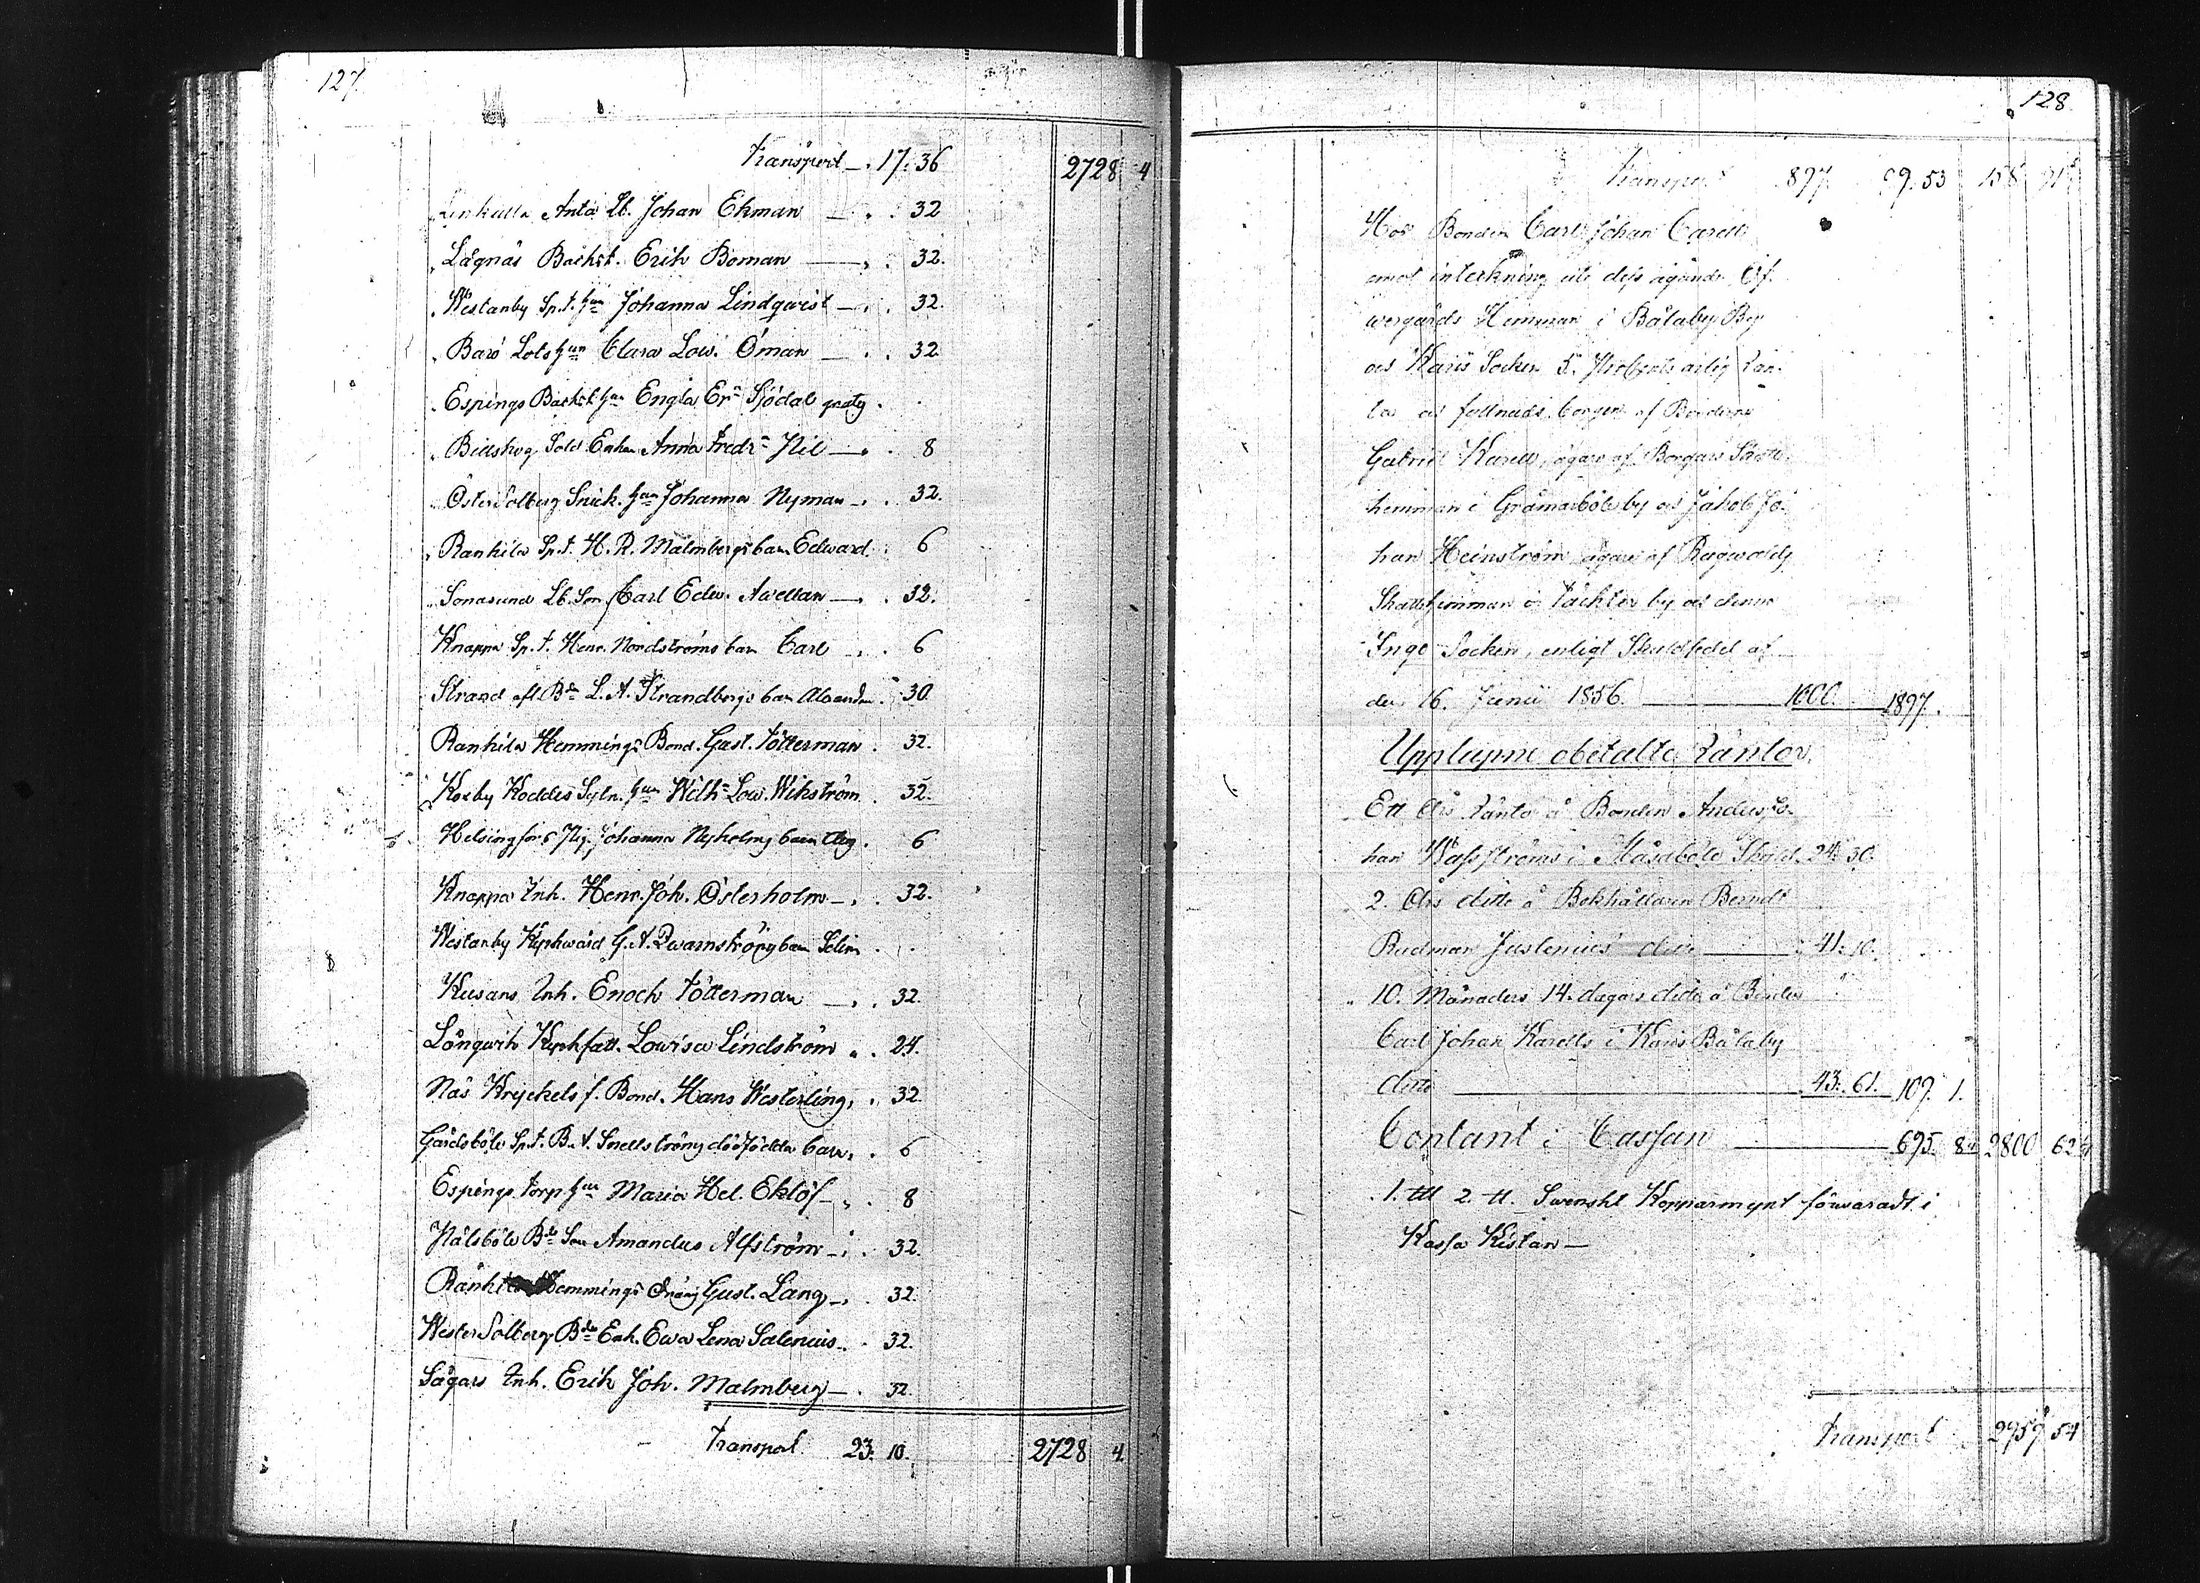 127
Transport 17. 36 2728 4
Antä Lb. Johan Ekman 32
Lågnäs Backst. Erik Boman 32.
Westanby Sp. t. hun Johanna Lindqvist 32.
Barö Lots hun Clara Low. Öman 32
Espings Backst. hun Engla Er. Sjödal
Billskog Sold. Enkan Anna Fredr. Pil 8
Öster Solberg Snick. hun Johanna Nyman 32.
Rankila Sp. t. H. R. Malmbergs barn Edward 6
Sonasund Lb. Son Carl Edw. Avellan 32.
Knappa Sp. t. Henr. Nordströms barn Carl 6
Strand afl. Bdn L. A. Strandbergs barn 30.
Rankila Hemmings Bond. Gust. Tötterman 32.
Koxby Koddes hun Wilh. Low. Wikström 32.
Helsingfors Pig. Johanna Nyholms barn Aug. 6
Knappa Inh. Henr. Joh. Österholm 32.
Westanby G. A. Qwarnströms barn Selim
Kusans Inh. Enoch Tötterman 32.
Långwik Kyrkfatt. Lowisa Lindström 24.
Näs Kryckels f. Bond. Hans Westerling 32
Gårdsböle Sp. t. B. A. Snellströms dödfödda barn 6
Espings Torp hun Maria Hel. Eklöf 8
Pålsböle Bde Son Amandus Alfström 32.
Ränkila Hemmings dräng Gust. Lång 32.
Wester Solberg Bde Enk. Ewa Lena Salenius 32.
Sågars Inh. Erik Joh. Malmberg 32.
Transport 23. 10. 2728 4
128
Transport 897. 53
Hos Bonden Carl Johan Carell
emot inteckning uti dess ägande Öf-
wergårds Hemman i Bålaby By
och Karis Socken 5. Procents årlig Rän-
ta och borgen af Bönderne
Gabriel Karell, ägare af Borgars Skatte-
hemman i Gråmarböle by och Jakob Jo-
han Heinström ägare af Ragwalds
Skattehemman i Täckter by och denne
Ingo Socken, enligt Skuldsedel af
den 16. Junii 1856. 1000. 1897.
Upplupne obetalte Räntor.
Ett Års Ränta å Bonden Anders Jo-
han Wasströms i Måsaböle Skuld. 24. 30.
2. Års ditto å Bokhållaren Berndt
Rudman Juslenius' ditto 41. 10.
10. Månaders 14. dagars ditto å Bonden
Carl Johan Karells i Karis Bålaby
ditto 43. 61. 109. 1.
Contant i Cassan 695. 2800 62
1. 2. Svenskt Kopparmynt förvaradt i
Kassa Kistan
Transport 2959 54